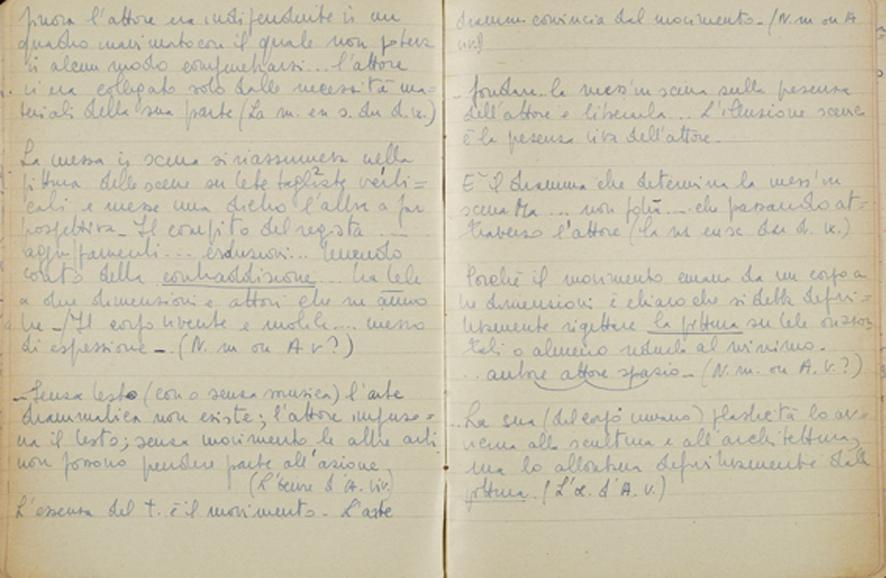 finora l'attore era indipendente in un
quadro inanimato con il quale non poteva
in alcun modo compenetrarsi... l'attore
vi era collegato solo dalle necessità ma=
teriali della sua parte (La m. en s. du d. w.)
La messa in scena si riassumeva nella
pittura delle scene su tele tagliate verti=
cali e messe una dietro l'altra a far
prospettiva_ Il compito del regista ....
aggruppamenti... esclusioni... tenendo
conto della contraddizione.... tra tele
a due dimensioni e attori che ne hanno
tre_/Il corpo vivente e mobile.... messo
di espressione_ (N. m ou A v?)
_Senza testo (con o senza musica) l'arte
drammatica non esiste; l'attore impuso=
na il testo; senza movimento le altre arti
non possono prendere parte all'azione
(L'œuvre d'A. viv.)
L'essenza del t. è il movimento. L'arte
dramm. comincia dal movimento_ (N. m ou A
viv?)
_fondare la mess'in scena sulla presenza
dell'attore e liberarla... L'illusione scenica
è la presenza viva dell'attore_
E' il dramma che determina la mess'in
scena Ma.... non potrà.... che passando at=
traverso l'attore (la m en sc du d. w.)
Poiché il movimento emana da un corpo a
tre dimensioni è chiaro che si debba defini=
tivamente rigettare la pittura su tele orizzon
tali o almeno ridurla al minimo_
.. autore attore spazio_ (N. m. ou A. V.?)
...La sua (del corpo umano) plasticità lo avvi=
cina alla scultura e all'architettura,
ma lo allontana definitivamente dalla
pittura. (L'œ. d'A. V.)